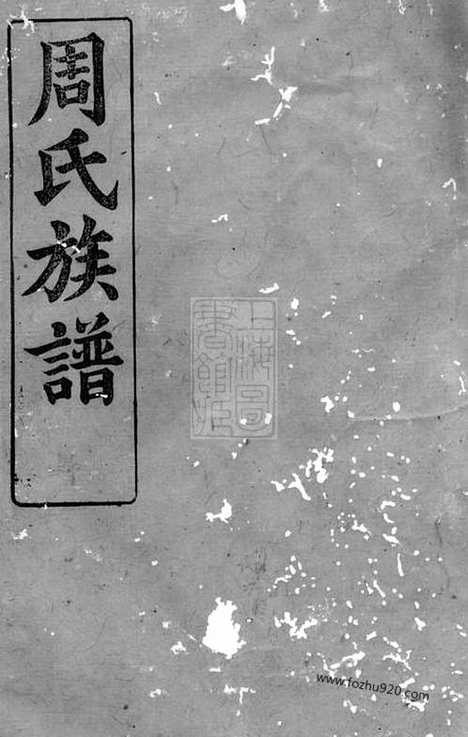 周氏族譜
上海圖
書館藏
www.fozhu920.com